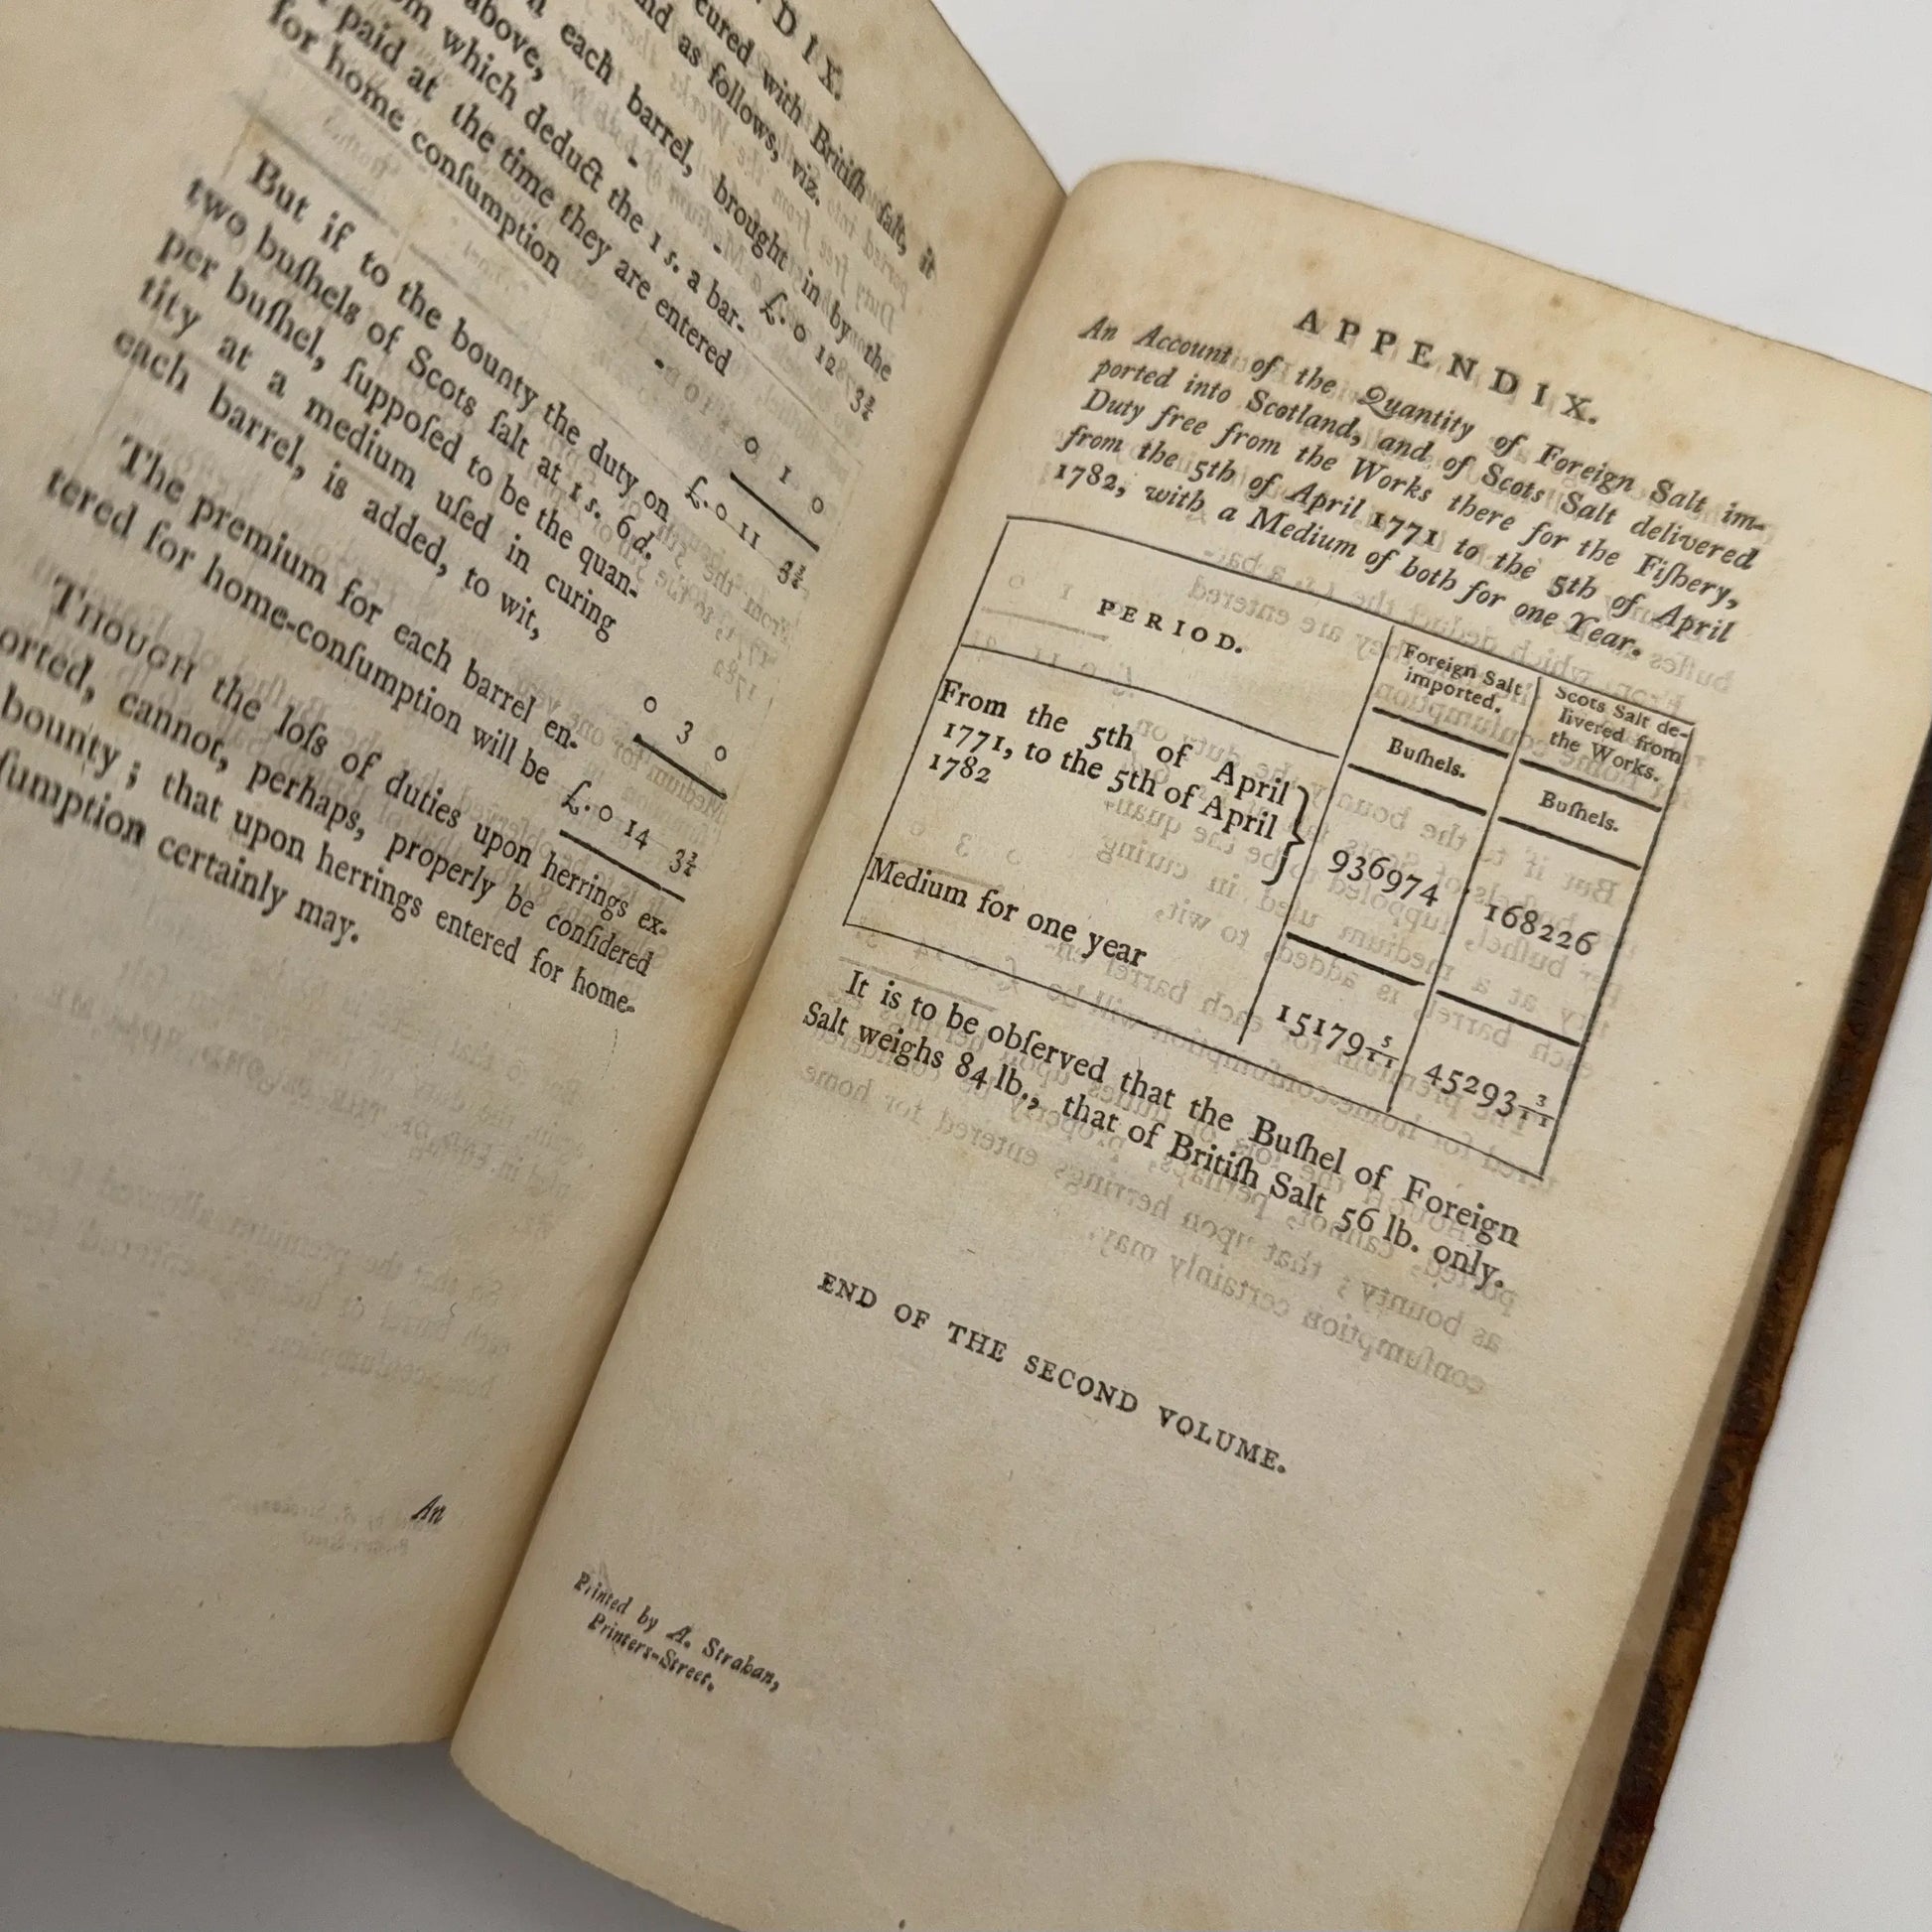 DIX.
cured with Britiſh ſalt, it
nd as follows, viz.
each barrel, brought in by the
above, - - £. 0 12 3¾
om which deduct the 1 s. a bar-
paid at the time they are entered
for home conſumption - 0 1 0
£. 0 11 3¾
But if to the bounty the duty on
two buſhels of Scots ſalt at 1 s. 6 d.
per buſhel, ſuppoſed to be the quan-
tity at a medium uſed in curing
each barrel, is added, to wit, 0 3 0
£. 0 14 3¾
The premium for each barrel en-
tered for home-conſumption will be
THOUGH the loſs of duties upon herrings ex-
orted, cannot, perhaps, properly be conſidered
bounty; that upon herrings entered for home-
ſumption certainly may.
An
APPENDIX.
An Account of the Quantity of Foreign Salt im-
ported into Scotland, and of Scots Salt delivered
Duty free from the Works there for the Fiſhery,
from the 5th of April 1771 to the 5th of April
1782, with a Medium of both for one Year.
PERIOD.
Foreign Salt
imported.
Scots Salt de-
livered from
the Works.
Buſhels.
Buſhels.
From the 5th of April
1771, to the 5th of April
1782
936974
168226
Medium for one year
15179 5/11
45293 3/11
It is to be obſerved that the Buſhel of Foreign
Salt weighs 84 lb., that of Britiſh Salt 56 lb. only.
END OF THE SECOND VOLUME.
Printed by A. Strahan,
Printers-Street.